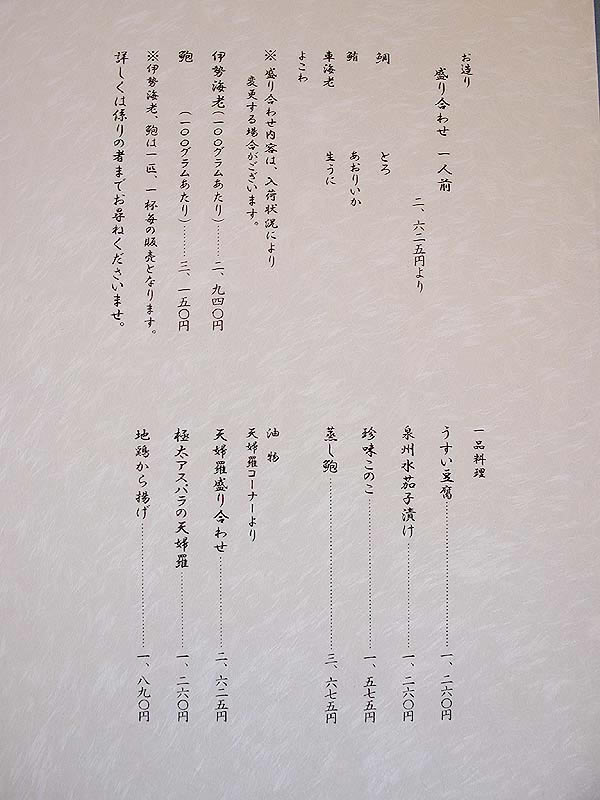 お造り
盛り合わせ 一人前
二、六二五円より
鯛 とろ
鮪 あおりいか
車海老 生うに
よこわ
※ 盛り合わせ内容は、入荷状況により
変更する場合がございます。
伊勢海老(一〇〇グラムあたり)………二、九四〇円
鮑 (一〇〇グラムあたり)………三、一五〇円
※伊勢海老、鮑は一匹、一杯毎の販売となります。
詳しくは係りの者までお尋ねくださいませ。
一品料理
うすい豆腐………一、二六〇円
泉州水茄子漬け………一、二六〇円
珍味このこ………一、五七五円
蒸し鮑………三、六七五円
油物
天婦羅コーナーより
天婦羅盛り合わせ………二、六二五円
極太アスパラの天婦羅………一、二六〇円
地鶏から揚げ………一、八九〇円